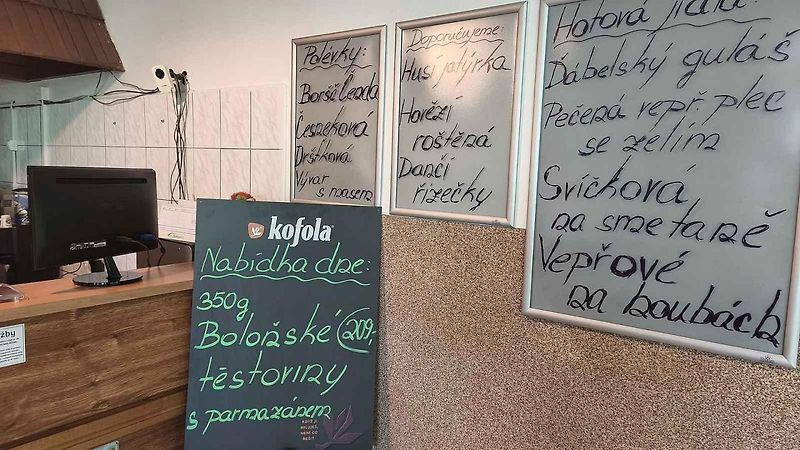 Polévky:
Boršč Čenda
Česneková
Drštková
Vývar
s masem
Doporučujeme:
Husí jatýrka
Hovězí
roštěná
Dančí
řízečky
Hotová jídla:
Ďábelský guláš
Pečená vepř. plec
se zelím
Svíčková
na smetaně
Vepřové
na houbách
kofola
Nabídka dne:
350g
Boloňské 209,-
těstoviny
s parmazánem
KDYŽ JI
MILUJEŠ,
NENÍ CO
ŘEŠIT.